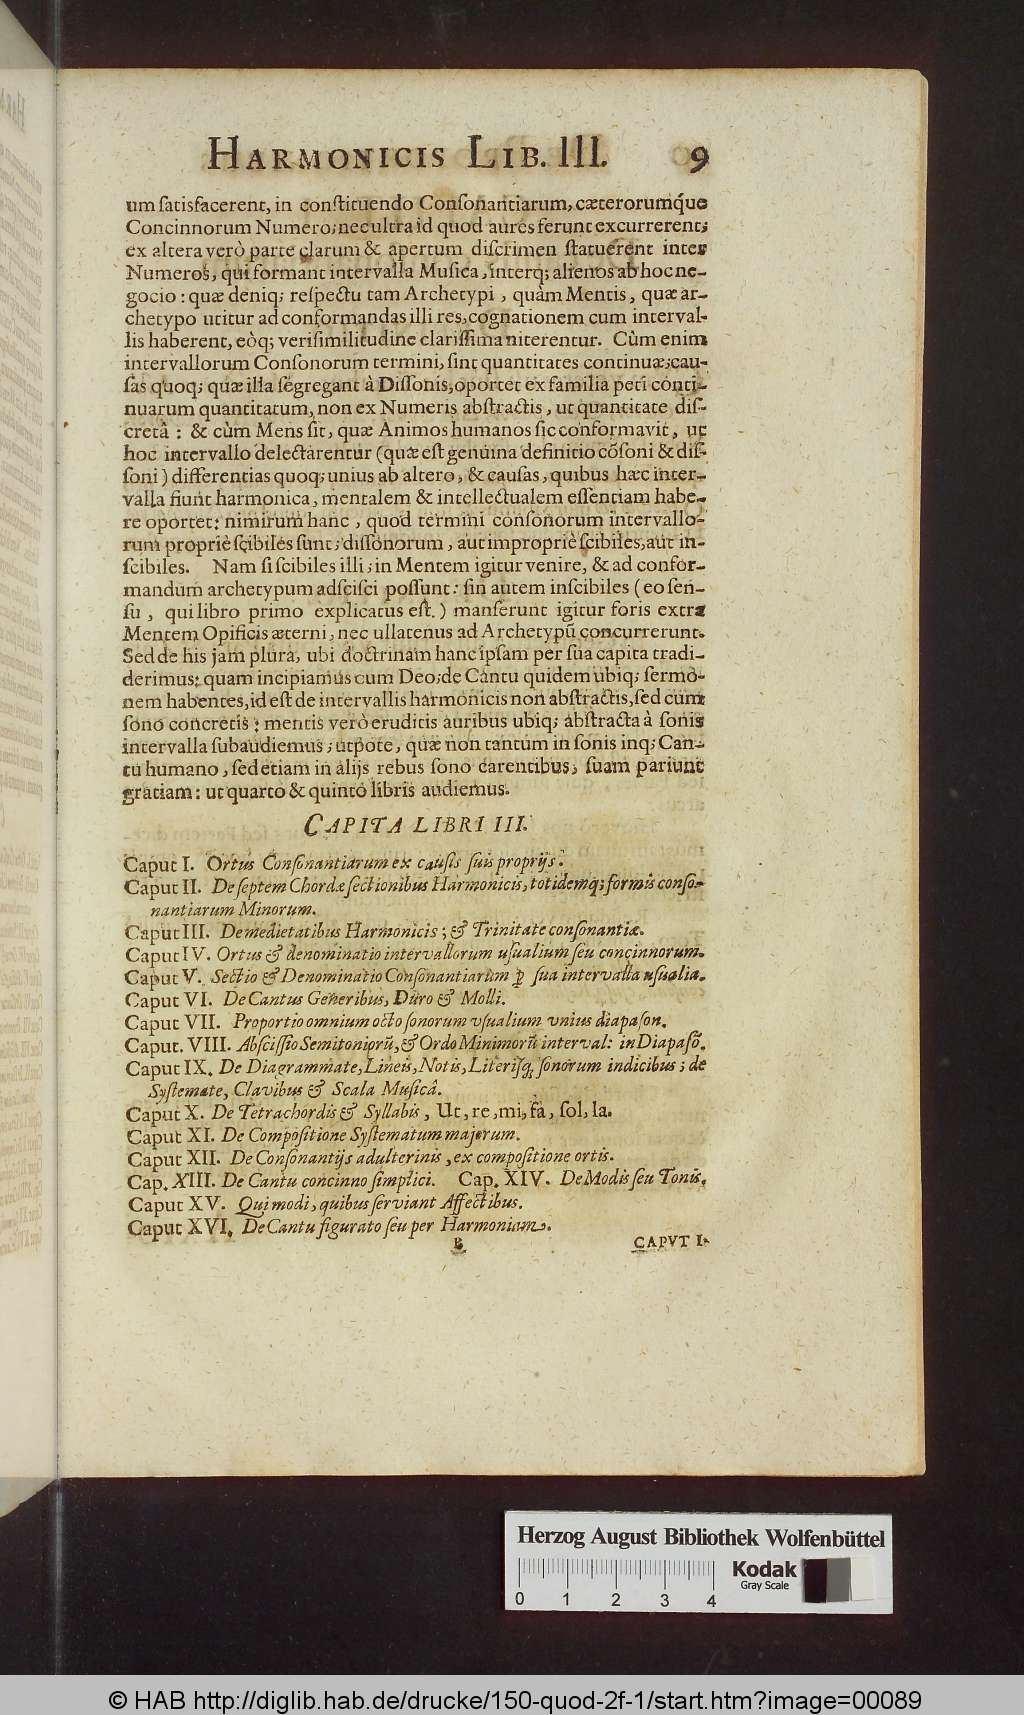 HARMONICIS LIB. III. 9
um satisfacerent, in constituendo Consonantiarum, cæterorumq́ue
Concinnorum Numero; nec ultra id quod aures ferunt excurrerent;
ex altera verò parte clarum & apertum discrimen statuerent inter
Numeros, qui formant intervalla Musica, interq; alienos ab hoc ne-
gocio: quæ deniq; respectu tam Archetypi, quàm Mentis, quæ ar-
chetypo utitur ad conformandas illi res, cognationem cum interval-
lis haberent, eòq; verisimilitudine clarissima niterentur. Cùm enim
intervallorum Consonorum termini, sint quantitates continuæ; cau-
sas quoq; quæ illa segregant à Dissonis, oportet ex familia peti conti-
nuarum quantitatum, non ex Numeris abstractis, ut quantitate dis-
cretâ: & cùm Mens sit, quæ Animos humanos sic conformavit, ut
hoc intervallo delectarentur (quæ est genuina definitio cõsoni & dis-
soni) differentias quoq; unius ab altero, & causas, quibus hæc inter-
valla fiunt harmonica, mentalem & intellectualem essentiam habe-
re oportet: nimirum hanc, quod termini consonorum intervallo-
rum propriè scibiles sunt; dissonorum, aut impropriè scibiles, aut in-
scibiles. Nam si scibiles illi; in Mentem igitur venire, & ad confor-
mandum archetypum adscisci possunt: sin autem inscibiles (eo sen-
su, qui libro primo explicatus est.) manserunt igitur foris extra
Mentem Opificis æterni, nec ullatenus ad Archetypũ concurrerunt.
Sed de his jam plura, ubi doctrinam hanc ipsam per sua capita tradi-
derimus: quam incipiamus cum Deo; de Cantu quidem ubiq; sermo-
nem habentes, id est de intervallis harmonicis non abstractis, sed cum
sono concretis: mentis verò eruditis auribus ubiq; abstracta à sonis
intervalla subaudiemus; utpote, quæ non tantùm in sonis inq; Can-
tu humano, sed etiam in alijs rebus sono carentibus, suam pariunt
gratiam: ut quarto & quinto libris audiemus.
CAPITA LIBRI III.
Caput I. Ortus Consonantiarum ex causis suis proprijs.
Caput II. De septem Chordæ sectionibus Harmonicis, totidemq; formis conso-
nantiarum Minorum.
Caput III. De medietatibus Harmonicis; & Trinitate consonantiæ.
Caput IV. Ortus & denominatio intervallorum usualium seu concinnorum.
Caput V. Sectio & Denominatio Consonantiarum p sua intervalla usualia.
Caput VI. De Cantus Generibus, Duro & Molli.
Caput VII. Proportio omnium octo sonorum usualium unius diapason.
Caput. VIII. Abscissio Semitoniorũ, & Ordo Minimorũ interval: in Diapasõ.
Caput IX. De Diagrammate, Lineis, Notis, Literisq; sonorum indicibus; de
Systemate, Clavibus & Scala Musicâ.
Caput X. De Tetrachordis & Syllabis, Ut, re, mi, fa, sol, la.
Caput XI. De Compositione Systematum majorum.
Caput XII. De Consonantijs adulterinis, ex compositione ortis.
Cap. XIII. De Cantu concinno simplici. Cap. XIV. De Modis seu Tonis.
Caput XV. Qui modi, quibus serviant Affectibus.
Caput XVI. De Cantu figurato seu per Harmoniam.
B CAPVT I.
Herzog August Bibliothek Wolfenbüttel
Kodak
Gray Scale
0 1 2 3 4
© HAB http://diglib.hab.de/drucke/150-quod-2f-1/start.htm?image=00089